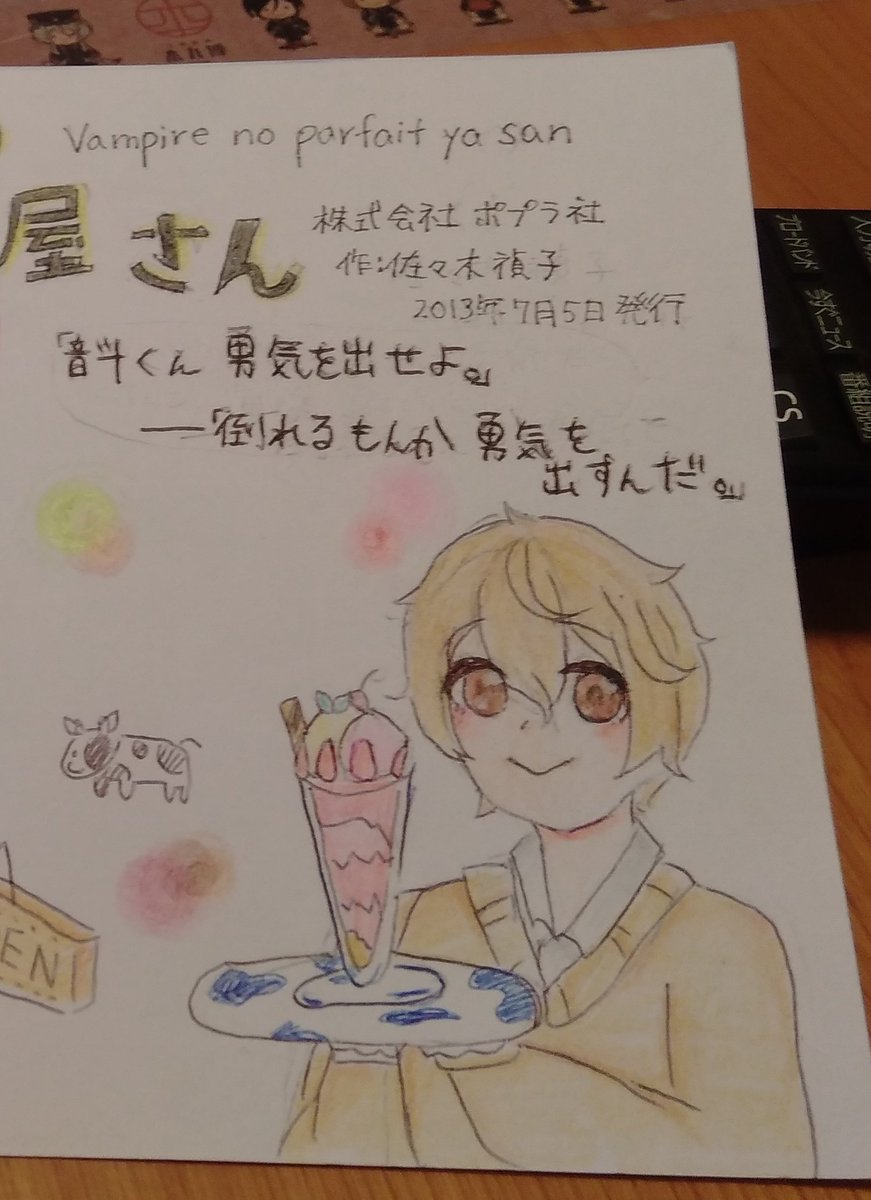 Vampire no parfait ya san
屋さん
株式会社 ポプラ社
作:佐々木禎子
2013年7月5日 発行
「音斗くん 勇気を出せよ。」
──「倒れるもんか 勇気を
出すんだ。」
EN
CS